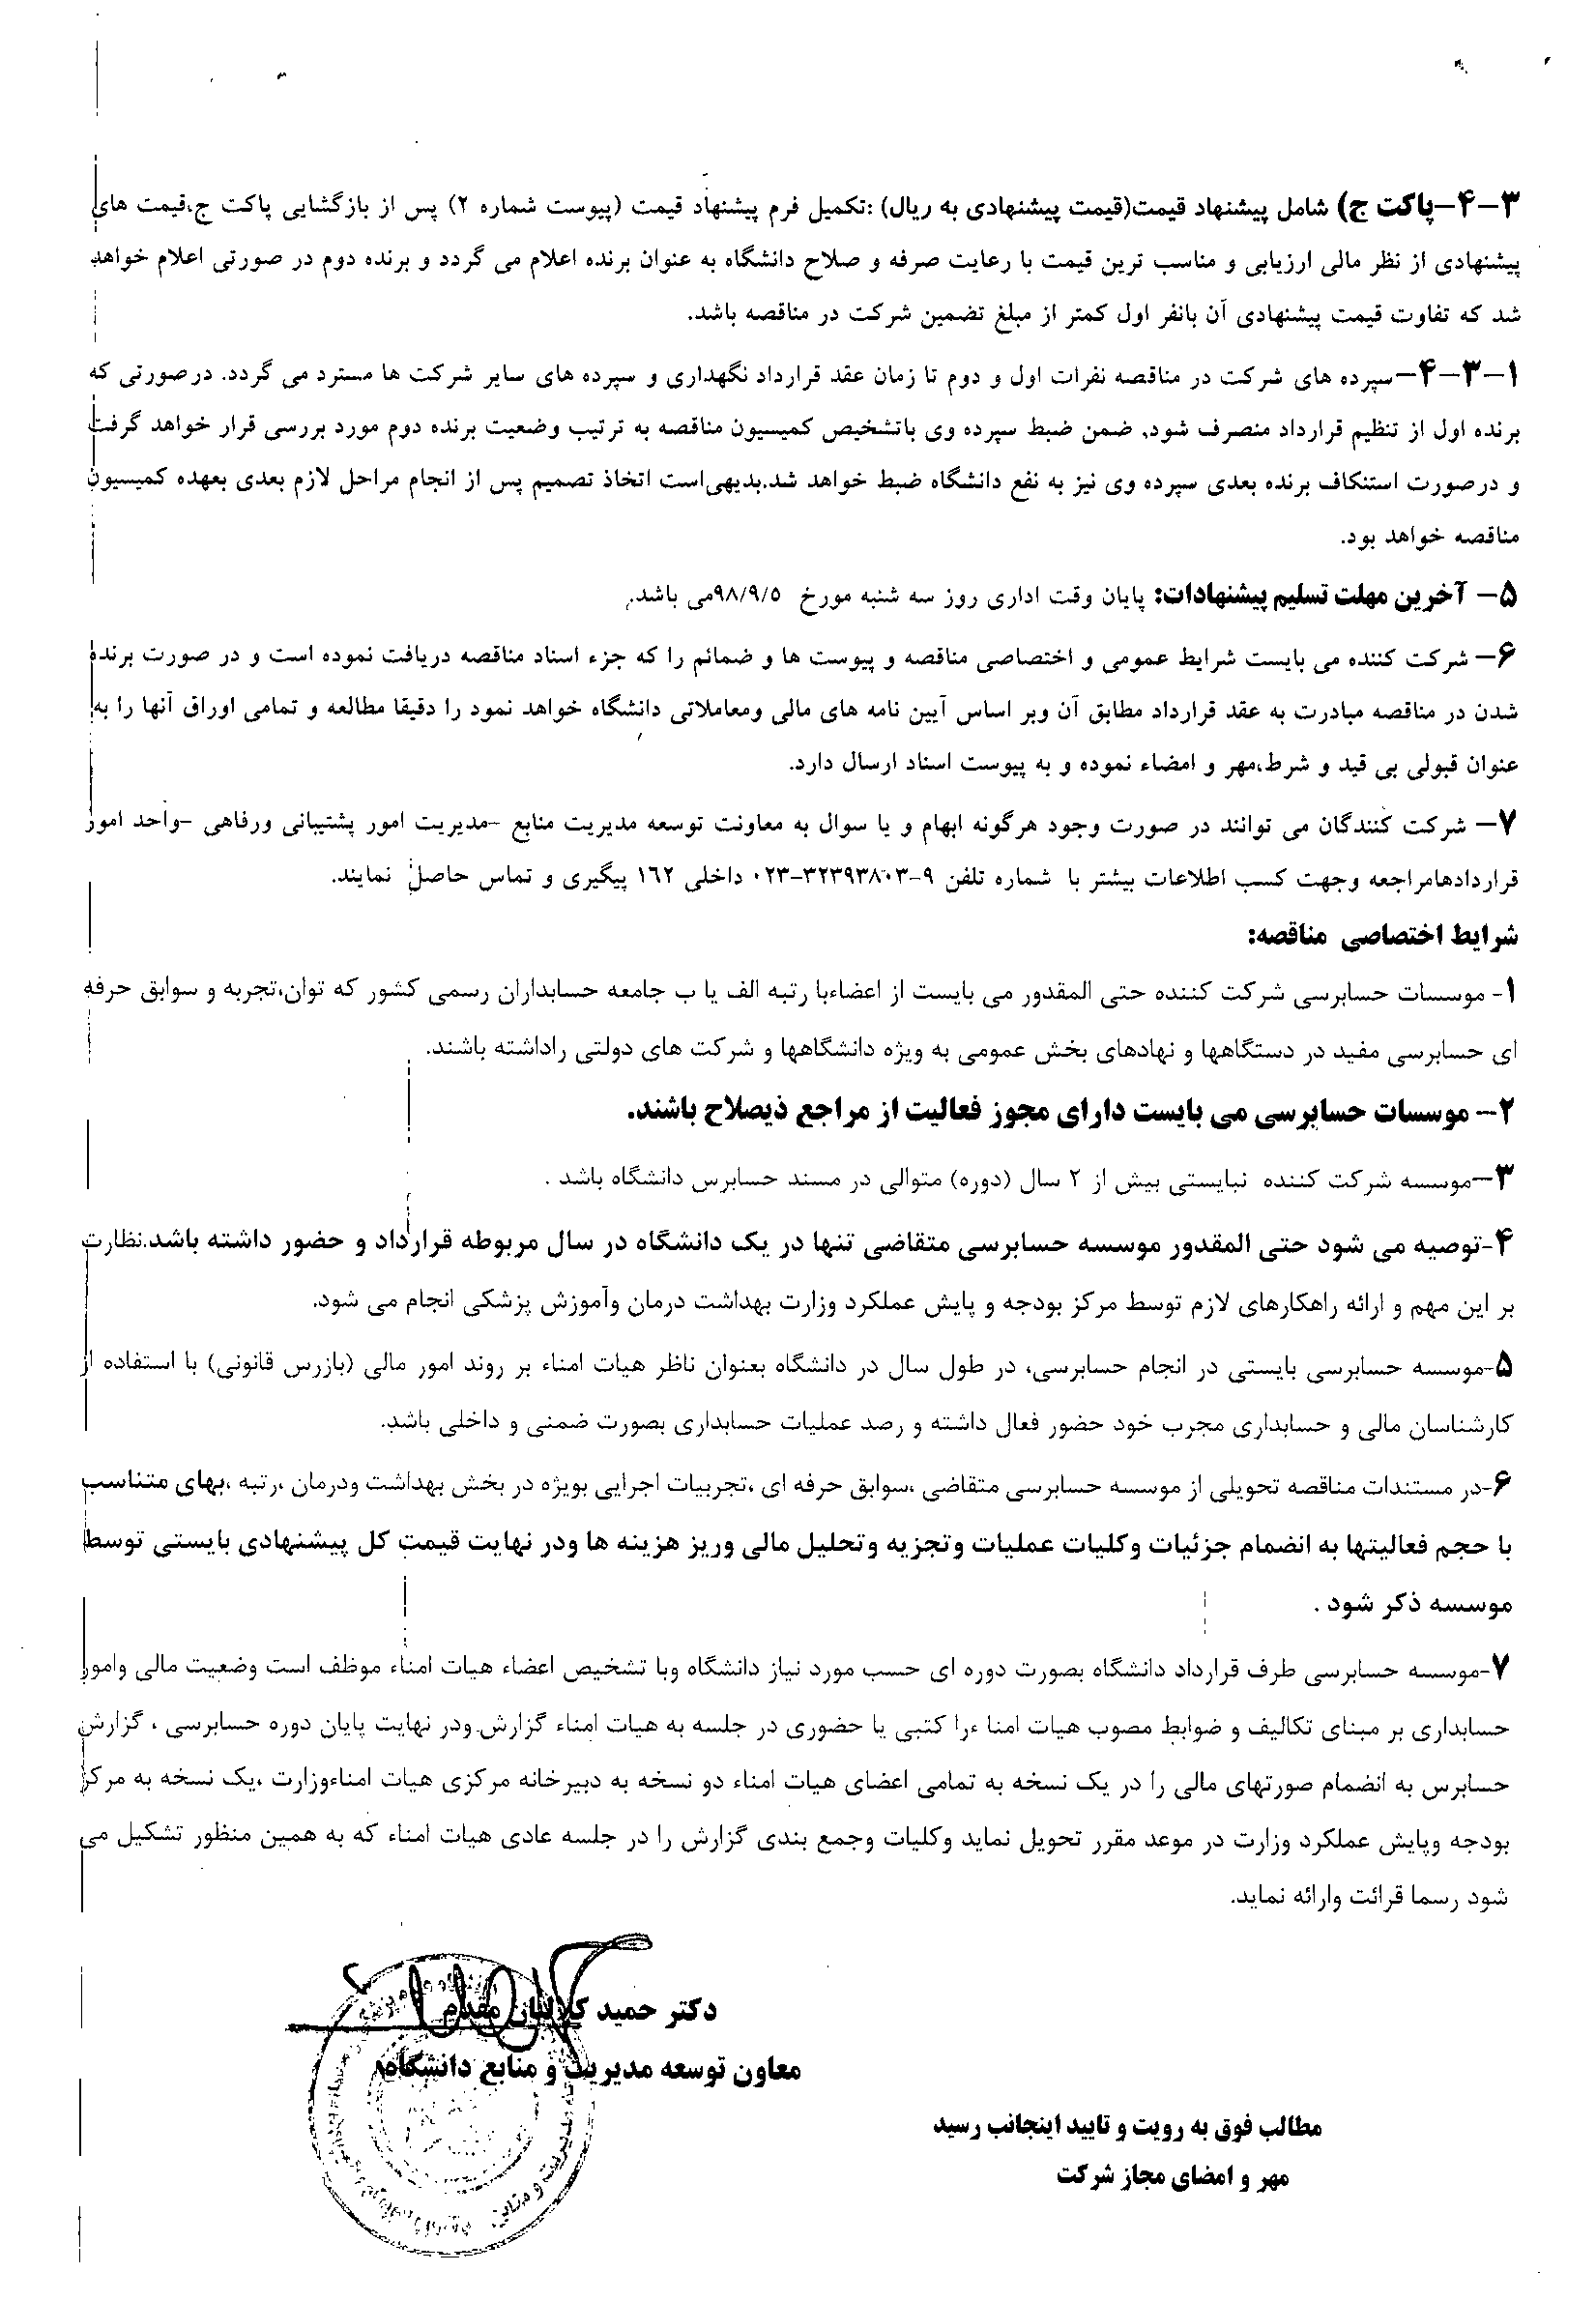 ۴-۳-پاکت ج) شامل پیشنهاد قیمت(قیمت پیشنهادی به ریال) :تکمیل فرم پیشنهاد قیمت (پیوست شماره ۲) پس از بازگشایی پاکت ج،قیمت های
پیشنهادی از نظر مالی ارزیابی و مناسب ترین قیمت با رعایت صرفه و صلاح دانشگاه به عنوان برنده اعلام می گردد و برنده دوم در صورتی اعلام خواهد
شد که تفاوت قیمت پیشنهادی آن بانفر اول کمتر از مبلغ تضمین شرکت در مناقصه باشد.
۴-۳-۱-سپرده های شرکت در مناقصه نفرات اول و دوم تا زمان عقد قرارداد نگهداری و سپرده های سایر شرکت ها مسترد می گردد. درصورتی که
برنده اول از تنظیم قرارداد منصرف شود، ضمن ضبط سپرده وی باتشخیص کمیسیون مناقصه به ترتیب وضعیت برنده دوم مورد بررسی قرار خواهد گرفت
و درصورت استنکاف برنده بعدی سپرده وی نیز به نفع دانشگاه ضبط خواهد شد.بدیهی‌است اتخاذ تصمیم پس از انجام مراحل لازم بعدی بعهده کمیسیون
مناقصه خواهد بود.
۵- آخرین مهلت تسلیم پیشنهادات: پایان وقت اداری روز سه شنبه مورخ ۹۸/۹/۵می باشد.
۶- شرکت کننده می بایست شرایط عمومی و اختصاصی مناقصه و پیوست ها و ضمائم را که جزء اسناد مناقصه دریافت نموده است و در صورت برنده
شدن در مناقصه مبادرت به عقد قرارداد مطابق آن وبر اساس آیین نامه های مالی ومعاملاتی دانشگاه خواهد نمود را دقیقا مطالعه و تمامی اوراق آنها را به
عنوان قبولی بی قید و شرط،مهر و امضاء نموده و به پیوست اسناد ارسال دارد.
۷- شرکت کنندگان می توانند در صورت وجود هرگونه ابهام و یا سوال به معاونت توسعه مدیریت منابع -مدیریت امور پشتیبانی ورفاهی -واحد امور
قراردادهامراجعه وجهت کسب اطلاعات بیشتر با شماره تلفن ۹-۳۲۳۹۳۸۰۳-۰۲۳ داخلی ۱۶۲ پیگیری و تماس حاصل نمایند.
شرایط اختصاصی مناقصه:
۱- موسسات حسابرسی شرکت کننده حتی المقدور می بایست از اعضاءبا رتبه الف یا ب جامعه حسابداران رسمی کشور که توان،تجربه و سوابق حرفه
ای حسابرسی مفید در دستگاهها و نهادهای بخش عمومی به ویژه دانشگاهها و شرکت های دولتی راداشته باشند.
۲- موسسات حسابرسی می بایست دارای مجوز فعالیت از مراجع ذیصلاح باشند.
۳-موسسه شرکت کننده نبایستی بیش از ۲ سال (دوره) متوالی در مسند حسابرس دانشگاه باشد .
۴-توصیه می شود حتی المقدور موسسه حسابرسی متقاضی تنها در یک دانشگاه در سال مربوطه قرارداد و حضور داشته باشد.نظارت
بر این مهم و ارائه راهکارهای لازم توسط مرکز بودجه و پایش عملکرد وزارت بهداشت درمان وآموزش پزشکی انجام می شود.
۵-موسسه حسابرسی بایستی در انجام حسابرسی، در طول سال در دانشگاه بعنوان ناظر هیات امناء بر روند امور مالی (بازرس قانونی) با استفاده از
کارشناسان مالی و حسابداری مجرب خود حضور فعال داشته و رصد عملیات حسابداری بصورت ضمنی و داخلی باشد.
۶-در مستندات مناقصه تحویلی از موسسه حسابرسی متقاضی ،سوابق حرفه ای ،تجربیات اجرایی بویژه در بخش بهداشت ودرمان ،رتبه ،بهای متناسب
با حجم فعالیتها به انضمام جزئیات وکلیات عملیات وتجزیه وتحلیل مالی وریز هزینه ها ودر نهایت قیمت کل پیشنهادی بایستی توسط
موسسه ذکر شود .
۷-موسسه حسابرسی طرف قرارداد دانشگاه بصورت دوره ای حسب مورد نیاز دانشگاه وبا تشخیص اعضاء هیات امناء موظف است وضعیت مالی وامور
حسابداری بر مبنای تکالیف و ضوابط مصوب هیات امنا ءرا کتبی یا حضوری در جلسه به هیات امناء گزارش.ودر نهایت پایان دوره حسابرسی ، گزارش
حسابرس به انضمام صورتهای مالی را در یک نسخه به تمامی اعضای هیات امناء دو نسخه به دبیرخانه مرکزی هیات امناءوزارت ،یک نسخه به مرکز
بودجه وپایش عملکرد وزارت در موعد مقرر تحویل نماید وکلیات وجمع بندی گزارش را در جلسه عادی هیات امناء که به همین منظور تشکیل می
شود رسما قرائت وارائه نماید.
دکتر حمید کلالیان مقدم
معاون توسعه مدیریت و منابع دانشگاه
مطالب فوق به رویت و تایید اینجانب رسید
مهر و امضای مجاز شرکت